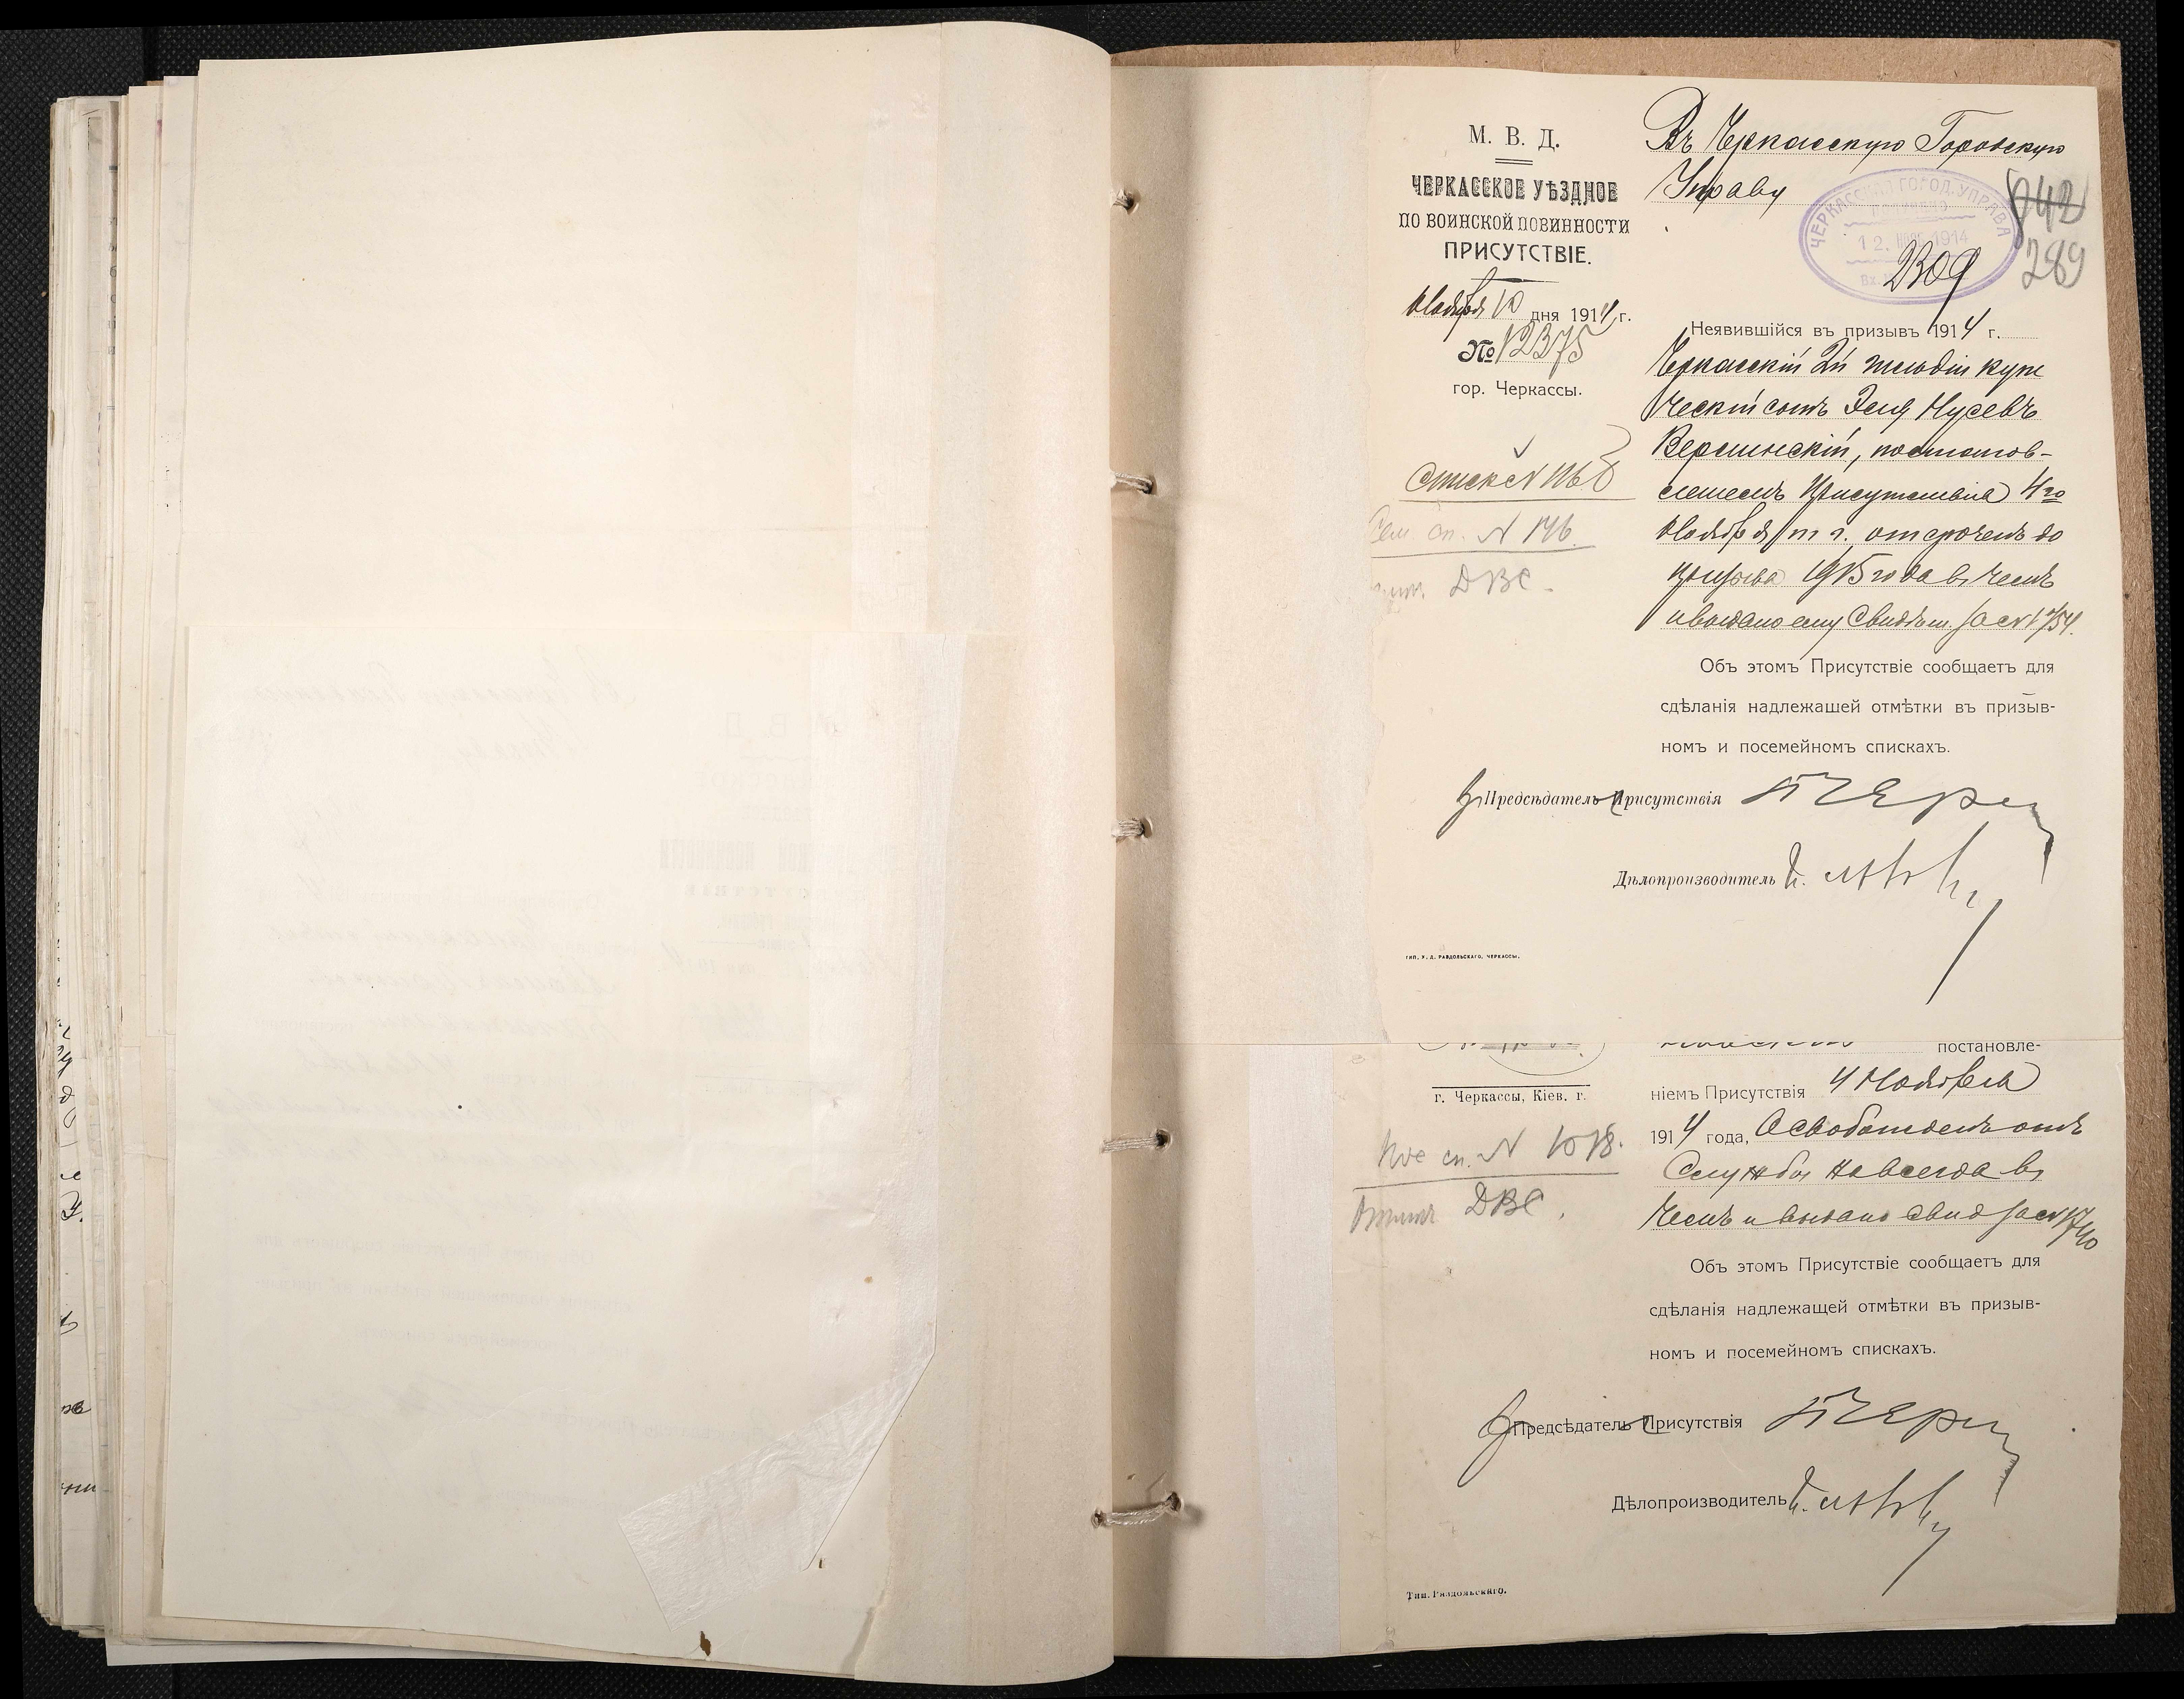 М. В. Д.
ЧЕРКАССКОЕ УѢЗДНОЕ
ПО ВОИНСКОЙ ПОВИННОСТИ
ПРИСУТСТВІЕ.
Ноября 10 дня 1914 г.
№ 12375
гор. Черкассы.
Въ Черкасскую Городскую
Управу
ЧЕРКАССК. ГОРОД. УПРАВА
12. НОЯБ 1914
Вх.
2309
289
Неявившійся въ призывъ 1914 г.
Черкасскій 2й гильдіи купе
ческій сынъ Эля Нусевъ
Вершинскій, постанов-
леніемъ Присутствія 4го
Ноября т г. отсроченъ до
призыва 1915 года въ чемъ
и выдано ему Свидѣт. за №
Сем. сп. № 146.
ДВС.
Объ этомъ Присутствіе сообщаетъ для
сдѣланія надлежашей отмѣтки въ призыв-
номъ и посемейномъ спискахъ.
Предсѣдатель Присутствія
Дѣлопроизводитель
ТИП. Х. Д. РАЗДОЛЬСКАГО, ЧЕРКАССЫ.
постановле-
ніемъ Присутствія 4 Ноября
1914 года, Освобожденъ отъ
Службы навсегда въ
чемъ и выдано свид за №
г. Черкассы, Кіев. г.
Пос сп. № 1078.
ДВС.
Объ этомъ Присутствіе сообщаетъ для
сдѣланія надлежащей отмѣтки въ призыв-
номъ и посемейномъ спискахъ.
Предсѣдатель Присутствія
Дѣлопроизводитель
Тип. Раздольскаго.